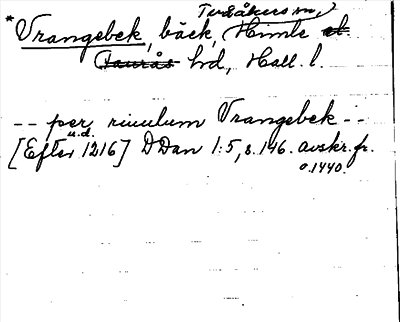 Tvååkers sn,
*Vrangebek, bäck, Himle el.
Faurås hd, Hall. l.
-- per riuulum Vrangebek --
u.d.
[Efter 1216] DDan 1:5, s. 146. avskr. fr.
o. 1440.